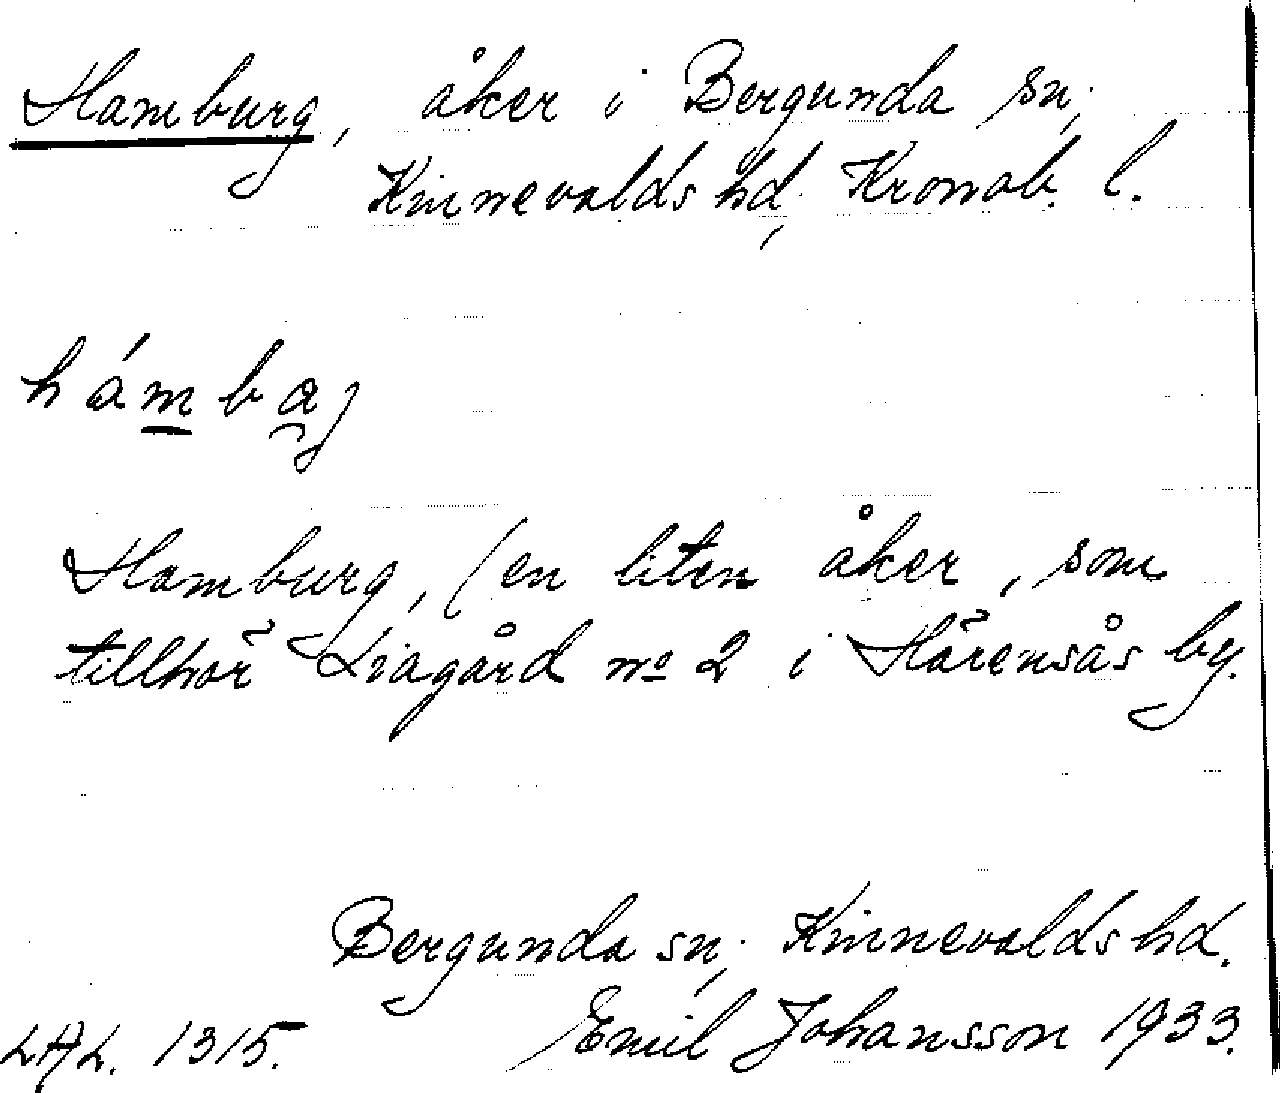 Hamburg, åker i Bergunda sn;
Kinnevalds hd, Kronob. l.
hámbaj
Hamburg, (en liten åker, som
tillhör Liagård nº 2 i Härensås by.
Bergunda sn; Kinnevalds hd.
LAL. 1315. Emil Johansson 1933.